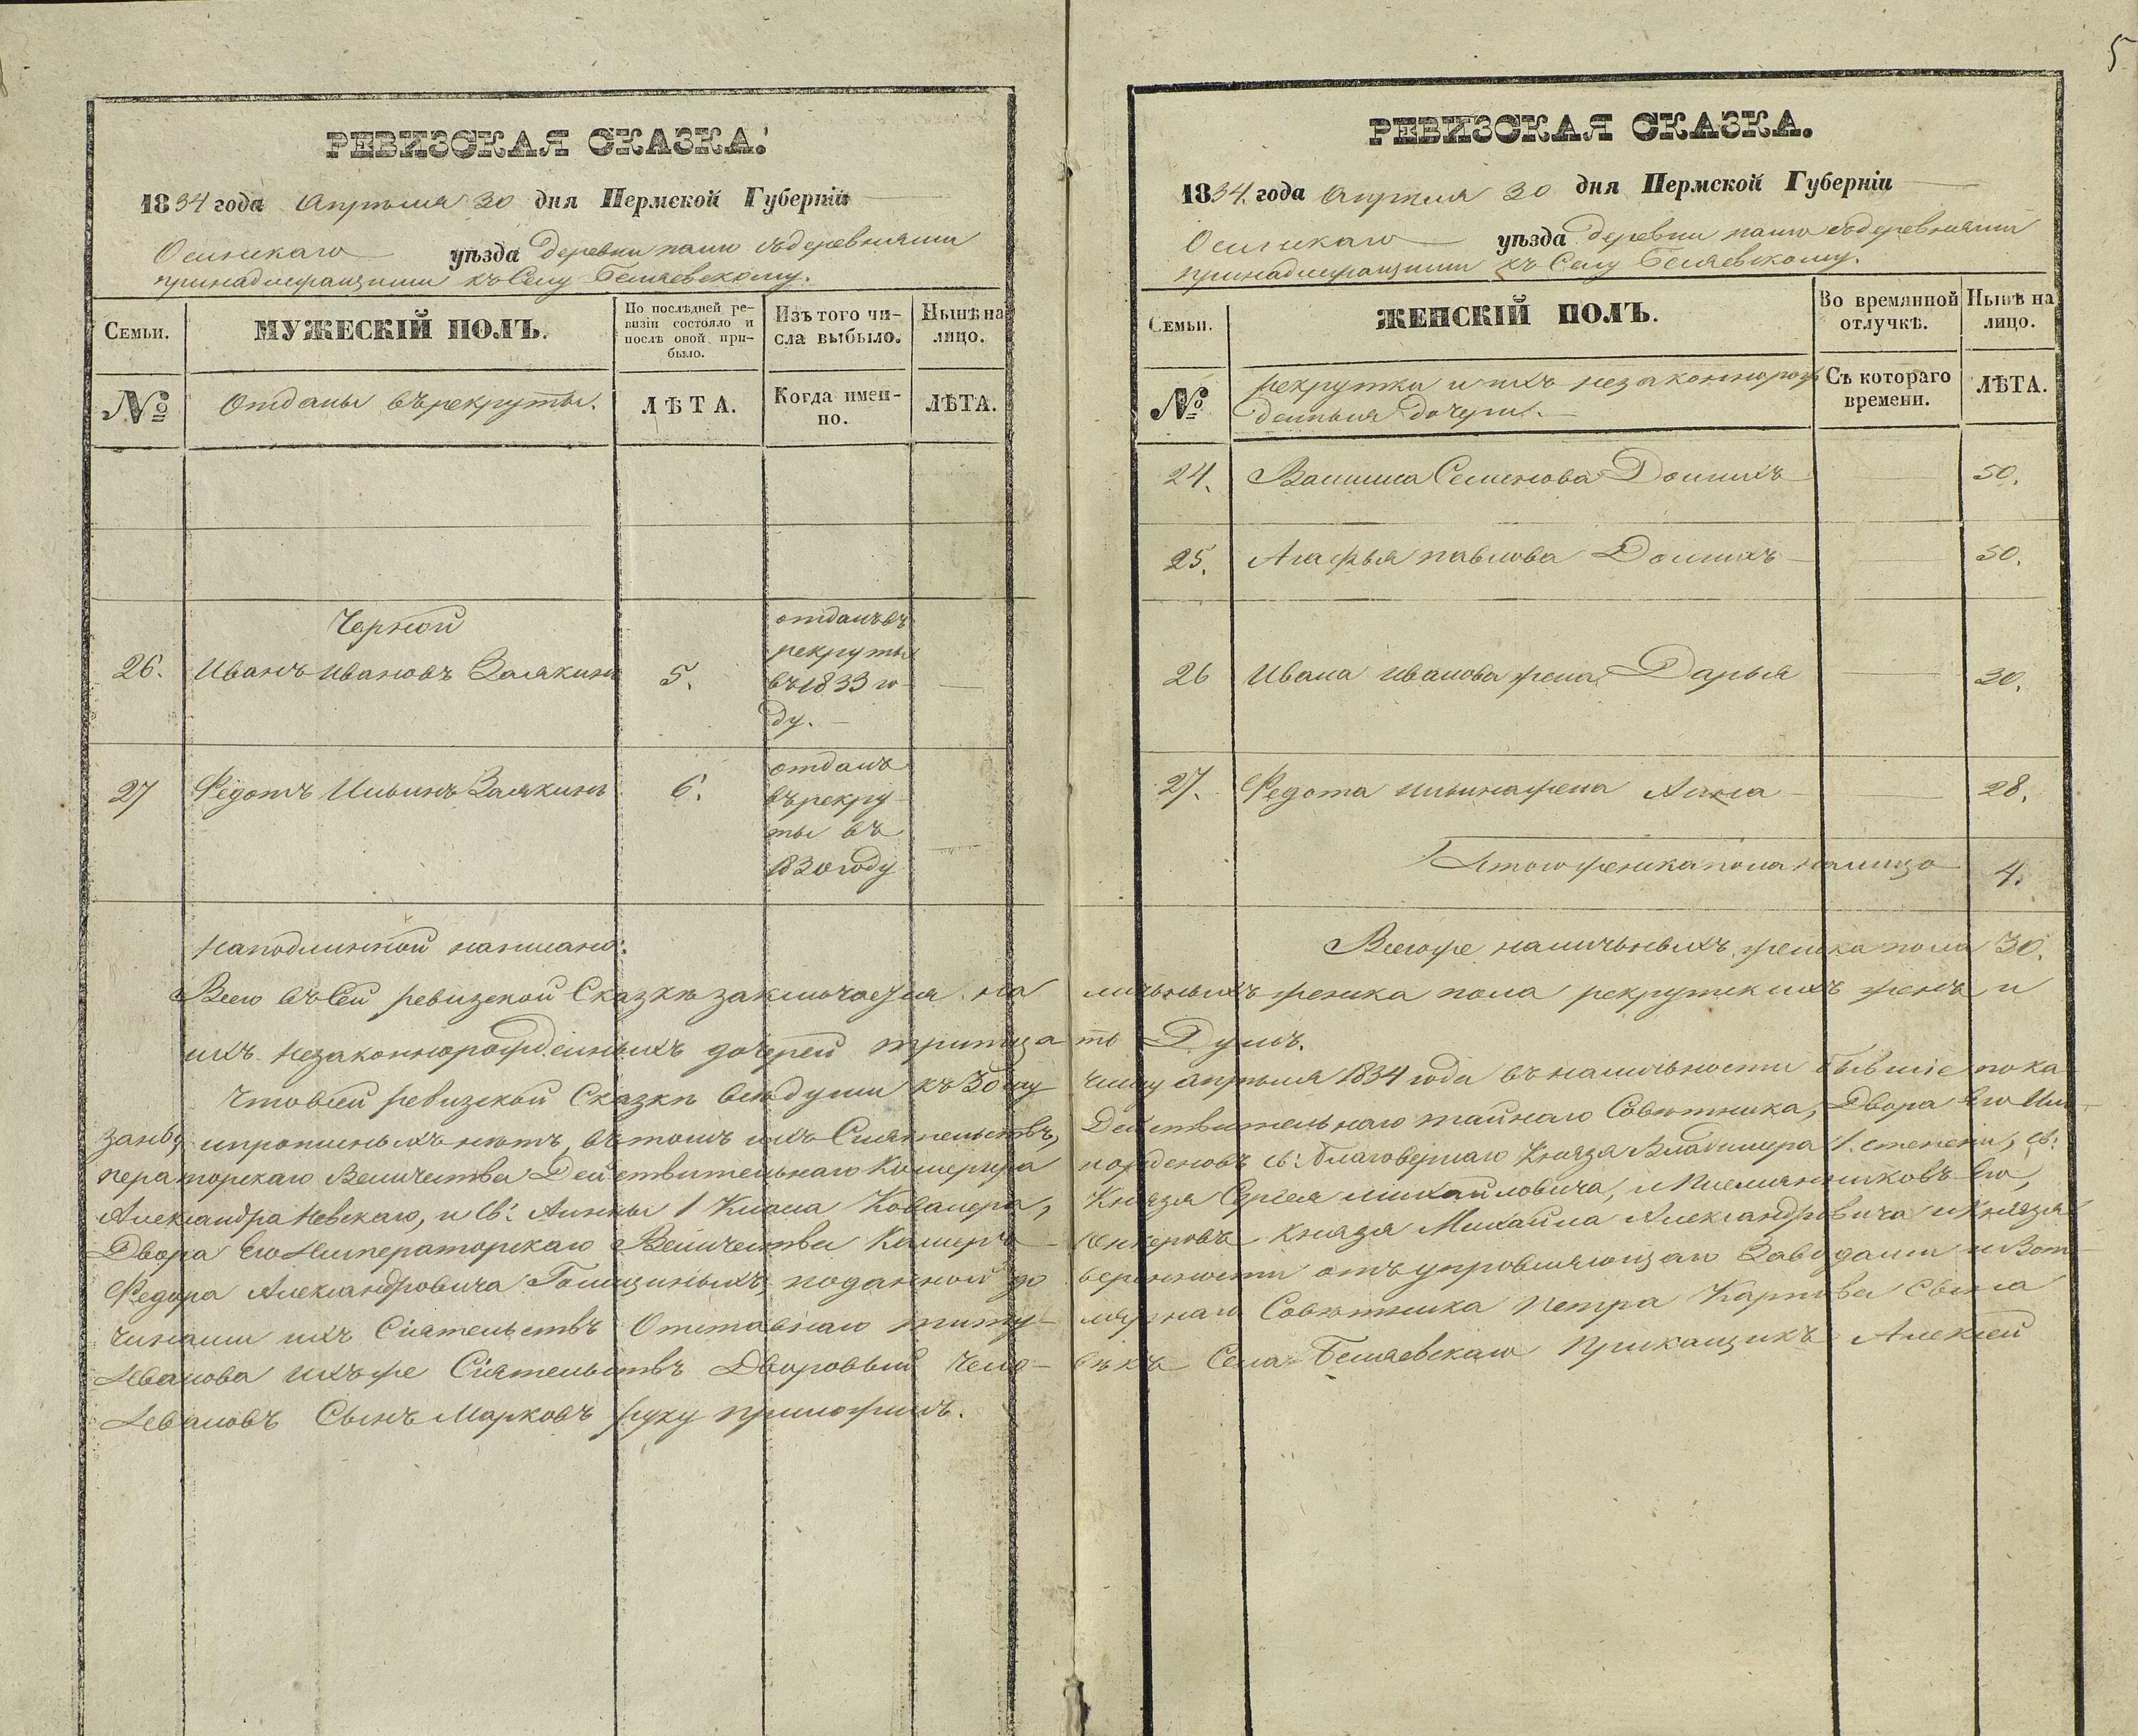 5
РЕВИЗСКАЯ СКАЗКА.
1834 года Апреля 30 дня Пермской Губерніи
Осинскаго уѣзда деревни съ деревнями
принадлежащими къ Селу Беляевскому.
Семьи. МУЖЕСКІЙ ПОЛЪ. По послѣдней ревизіи состояло и послѣ оной прибыло. Изъ того числа выбыло. Нынѣ на лицо.
№ Отданы въ рекруты. ЛѢТА. Когда именно. ЛѢТА.
Черной
26. Иванъ Ивановъ Залякинъ 5. отданъ въ
рекруты
въ 1833 го-
ду.
27 Федотъ Ильинъ Залякинъ 6. отданъ
въ рекру-
ты въ
1830 году
РЕВИЗСКАЯ СКАЗКА.
1834 года Апреля 30 дня Пермской Губерніи
Осинскаго уѣзда деревни съ деревнями
принадлежащими къ Селу Беляевскому.
Семьи. ЖЕНСКІЙ ПОЛЪ. Во времянной отлучкѣ. Нынѣ на лицо.
№ рекрутки и ихъ незаконнорож-
денныя дочери. Съ котораго времени. ЛѢТА.
24. Семенова 50.
25. Агафья павлова 50.
26 Ивана иванова жена Дарья 30.
27. Федота ильина жена Анна 28.
Итого женска пола налицо 4.
Всего же наличныхъ женска пола 30.
На подлинной написано:
Всего въ сей ревизской Сказкѣ заключается на личныхъ женска пола рекрутскихъ женъ и
ихъ незаконнорожденныхъ дочерей тритца ть Душъ.
Что въ сей ревизской Сказкѣ всѣ души къ 30 му числу апреля 1834 года въ наличности бывшіе пока
заны, и прописныхъ нѣтъ, въ томъ ихъ Сиятельствъ, Действительнаго тайнаго Совѣтника, Двора Его Им-
ператорскаго Величества Действительнаго Камергера и орденовъ св: благовернаго Князя Владимера 1. степени, св:
Александра Невскаго, и Св: Анны 1 Класа Ковалера, Князя Сергея михайловича, и Племянниковъ Его,
Двора Его Императорскаго Величества Камеръ- юнкеровъ Князя Михайла Александровича и Князя
Федора Александровича Голицыныхъ, по данной до веренности отъ управляющаго Заводами и Вот-
чинами ихъ Сіятельствъ Отставнаго титу- лярнаго Совѣтника Петра Карпова сына
Иванова ихъ же Сіятельствъ Дворовый чело- вѣкъ Села Беляевскаго Прикащикъ Алексей
Ивановъ Сынъ Марковъ руку приложилъ.